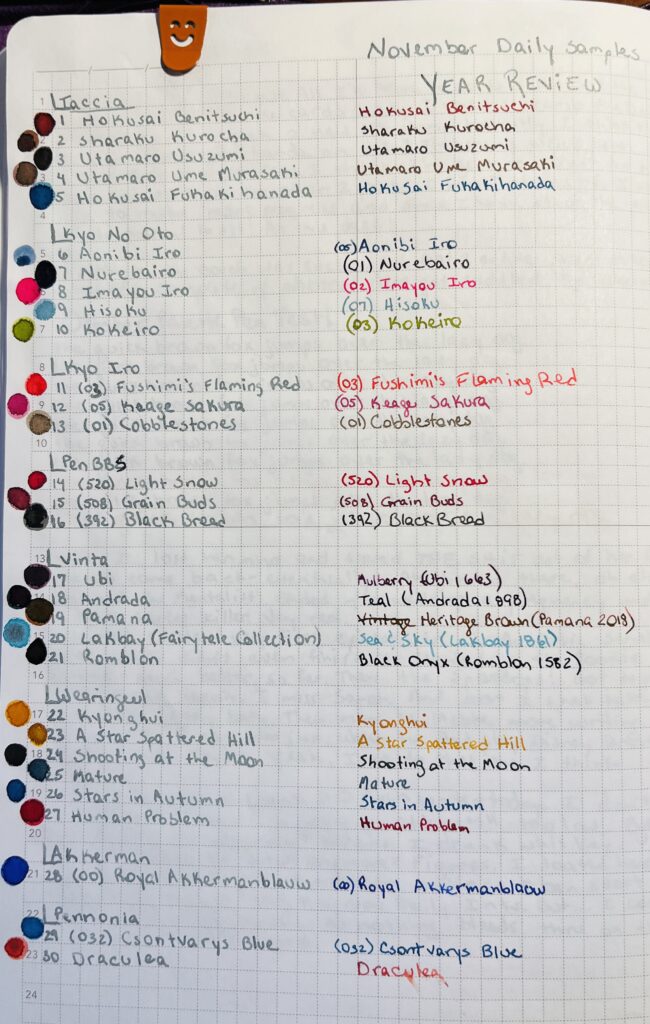 November Daily Samples
YEAR REVIEW
1 Taccia
1 Hokusai Benitsuchi Hokusai Benitsuchi
2 Sharaku Kurocha Sharaku Kurocha
3 Utamaro Usuzumi Utamaro Usuzumi
4 Utamaro Ume Murasaki Utamaro Ume Murasaki
5 Hokusai Fukakihanada Hokusai Fukakihanada
4
Kyo No Oto
5 6 Aonibi Iro (05) Aonibi Iro
7 Nurebairo (01) Nurebairo
8 Imayou Iro (02) Imayou Iro
9 Hisoku (07) Hisoku
7 10 Kokeiro (03) Kokeiro
8 Kyo Iro
11 (03) Fushimi's Flaming Red (03) Fushimi's Flaming Red
9 12 (05) Keage Sakura (05) Keage Sakura
13 (01) Cobblestones (01) Cobblestones
10
Pen BBS
14 (520) Light Snow (520) Light Snow
15 (508) Grain Buds (508) Grain Buds
16 (392) Black Bread (392) Black Bread
13 Vinta
17 Ubi Mulberry (Ubi 1663)
18 Andrada Teal (Andrada 1898)
19 Pamana Vintage Heritage Brown (Pamana 2018)
15 20 Lakbay (Fairytale Collection) Sea & Sky (Lakbay 1861)
21 Romblon Black Onyx (Romblon 1582)
16
Wearingeul
17 22 Kyonghui Kyonghui
23 A Star Spattered Hill A Star Spattered Hill
18 24 Shooting at the Moon Shooting at the Moon
25 Mature Mature
19 26 Stars in Autumn Stars in Autumn
27 Human Problem Human Problem
20
Akkerman
21 28 (00) Royal Akkermanblauw (00) Royal Akkermanblaow
22 Pennonia
29 (032) Csontvarys Blue (032) Csontvarys Blue
23 30 Draculea Draculea
24